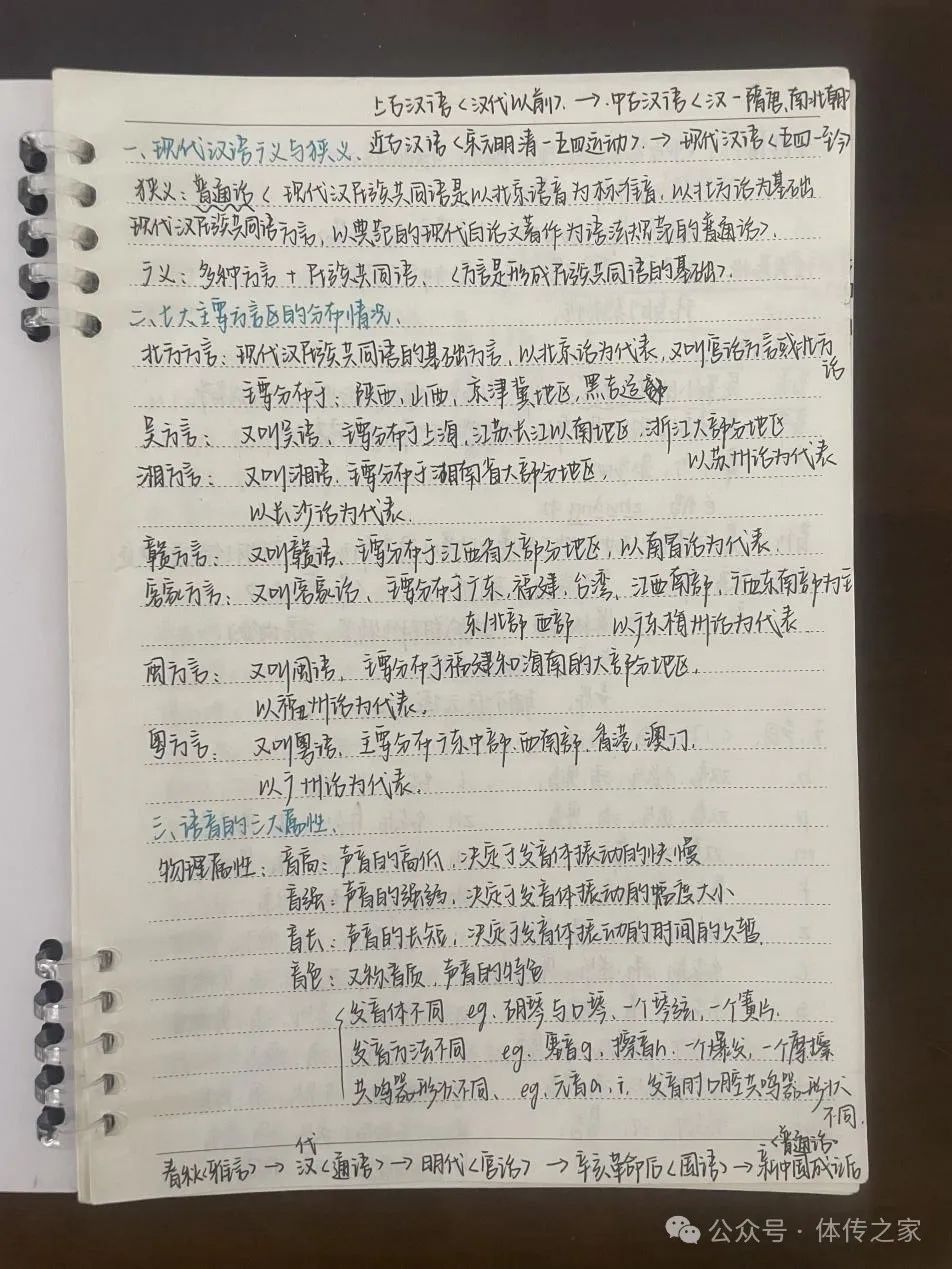 上古汉语<汉代以前>. → 中古汉语<汉-隋唐、南北朝>
一、现代汉语广义与狭义. 近古汉语<宋元明清-五四运动>. → 现代汉语<五四-至今>
狭义:普通话<现代汉民族共同语是以北京语音为标准音,以北方话为基础
现代汉民族共同语方言,以典范的现代白话文著作为语法规范的普通话>.
广义:多种方言+民族共同语、<方言是形成民族共同语的基础>.
二、七大主要方言区的分布情况.
北方方言:现代汉民族共同语的基础方言,以北京话为代表,又叫官话方言或北方
话
主要分布于:陕西,山西,京津冀地区,黑吉辽
吴方言: 又叫吴语,主要分布于上海,江苏长江以南地区,浙江大部分地区
以苏州话为代表
湘方言: 又叫湘语.主要分布于湖南省大部分地区,
以长沙话为代表.
赣方言: 又叫赣语、主要分布于江西省大部分地区,以南昌话为代表.
客家方言: 又叫客家话、主要分布于广东、福建,台湾、江西南部,广西东南部为主
东北部 西部 以广东梅州话为代表.
闽方言: 又叫闽语,主要分布于福建和海南的大部分地区,
以福州话为代表.
粤方言. 又叫粤语、主要分布于广东中部.西南部、香港,澳门,
以广州话为代表.
三、语音的三大属性.
物理属性:音高:声音的高低,决定于发音体振动的快慢
音强:声音的强弱,决定于发音体振动的幅度大小
音长:声音的长短,决定于发音体振动的时间的久暂.
音色:又称音质,声音的特色
发音体不同 eg.胡琴与口琴,一个琴弦,一个簧片.
发音方法不同 eg. 塞音g,擦音h.一个爆发,一个摩擦
共鸣器形状不同、eg.元音a,i, 发音时口腔共鸣器形状
不同.
代
<普通话>
春秋<雅言>→汉<通语>→明代<官话>→辛亥革命后<国语>→新中国成立后
公众号·体传之家